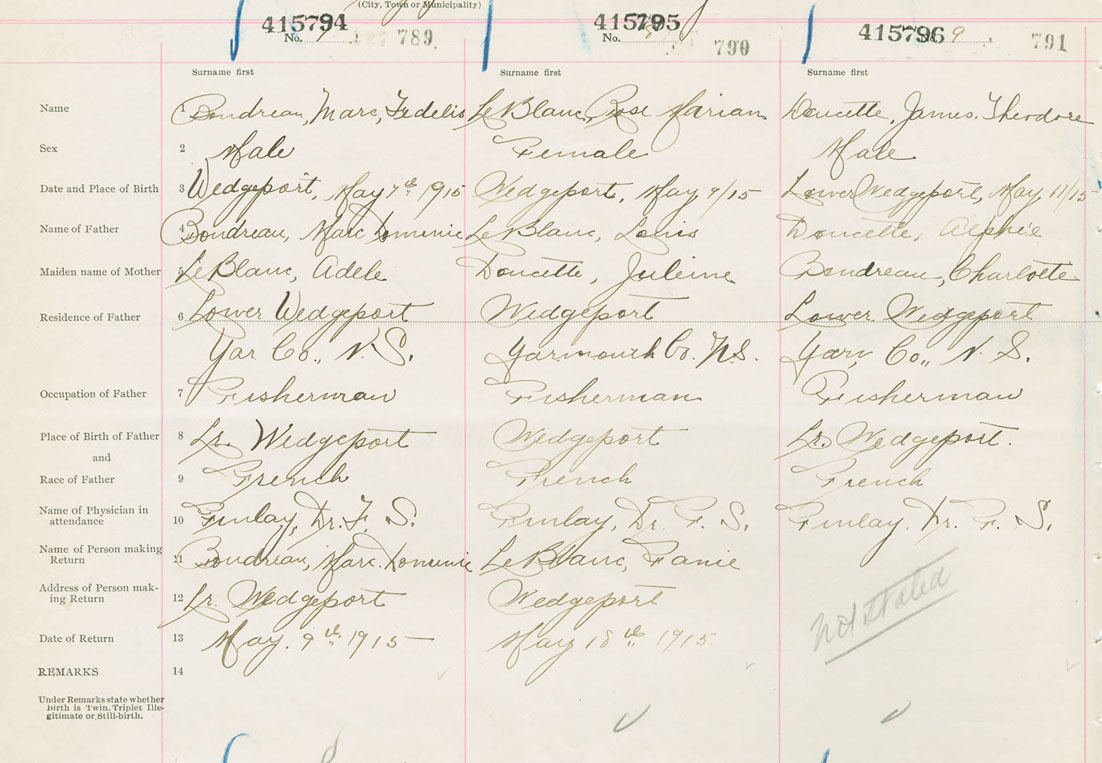 (City, Town or Municipality)
415794 415795 415796
No. 789 No. 790 9 791
Surname first Surname first Surname first
Name 1 Boudreau, Marc Fedelis LeBlanc, Rose Marian Doucette, James Theodore
Sex 2 Male Female Male
Date and Place of Birth 3 Wedgeport, May 7th 1915 Wedgeport, May 9/15 Lower Wedgeport, May 11/15
Name of Father 4 Boudreau, Marc Dominic LeBlanc, Louis Doucette, Alphie
Maiden name of Mother 5 LeBlanc, Adele Doucette, Juleine Boudreau, Charlotte
Residence of Father 6 Lower Wedgeport Wedgeport Lower Wedgeport
Yar Co., N.S. Yarmouth Co. N.S. Yar. Co., N.S.
Occupation of Father 7 Fisherman Fisherman Fisherman
Place of Birth of Father 8 Lr. Wedgeport Wedgeport Lr. Wedgeport.
and
Race of Father 9 French French French
Name of Physician in
attendance 10 Finlay, Dr. F. S. Finlay, Dr. F. S. Finlay, Dr. F. S.
Name of Person making
Return 11 Boudreau, Marc. Dominic LeBlanc, Fanie
Address of Person mak-
ing Return 12 Lr. Wedgeport Wedgeport
Not Stated
Date of Return 13 May. 9th 1915 May 18th 1915
REMARKS 14
Under Remarks state whether
birth is Twin, Triplet Ille-
gitimate or Still-birth.